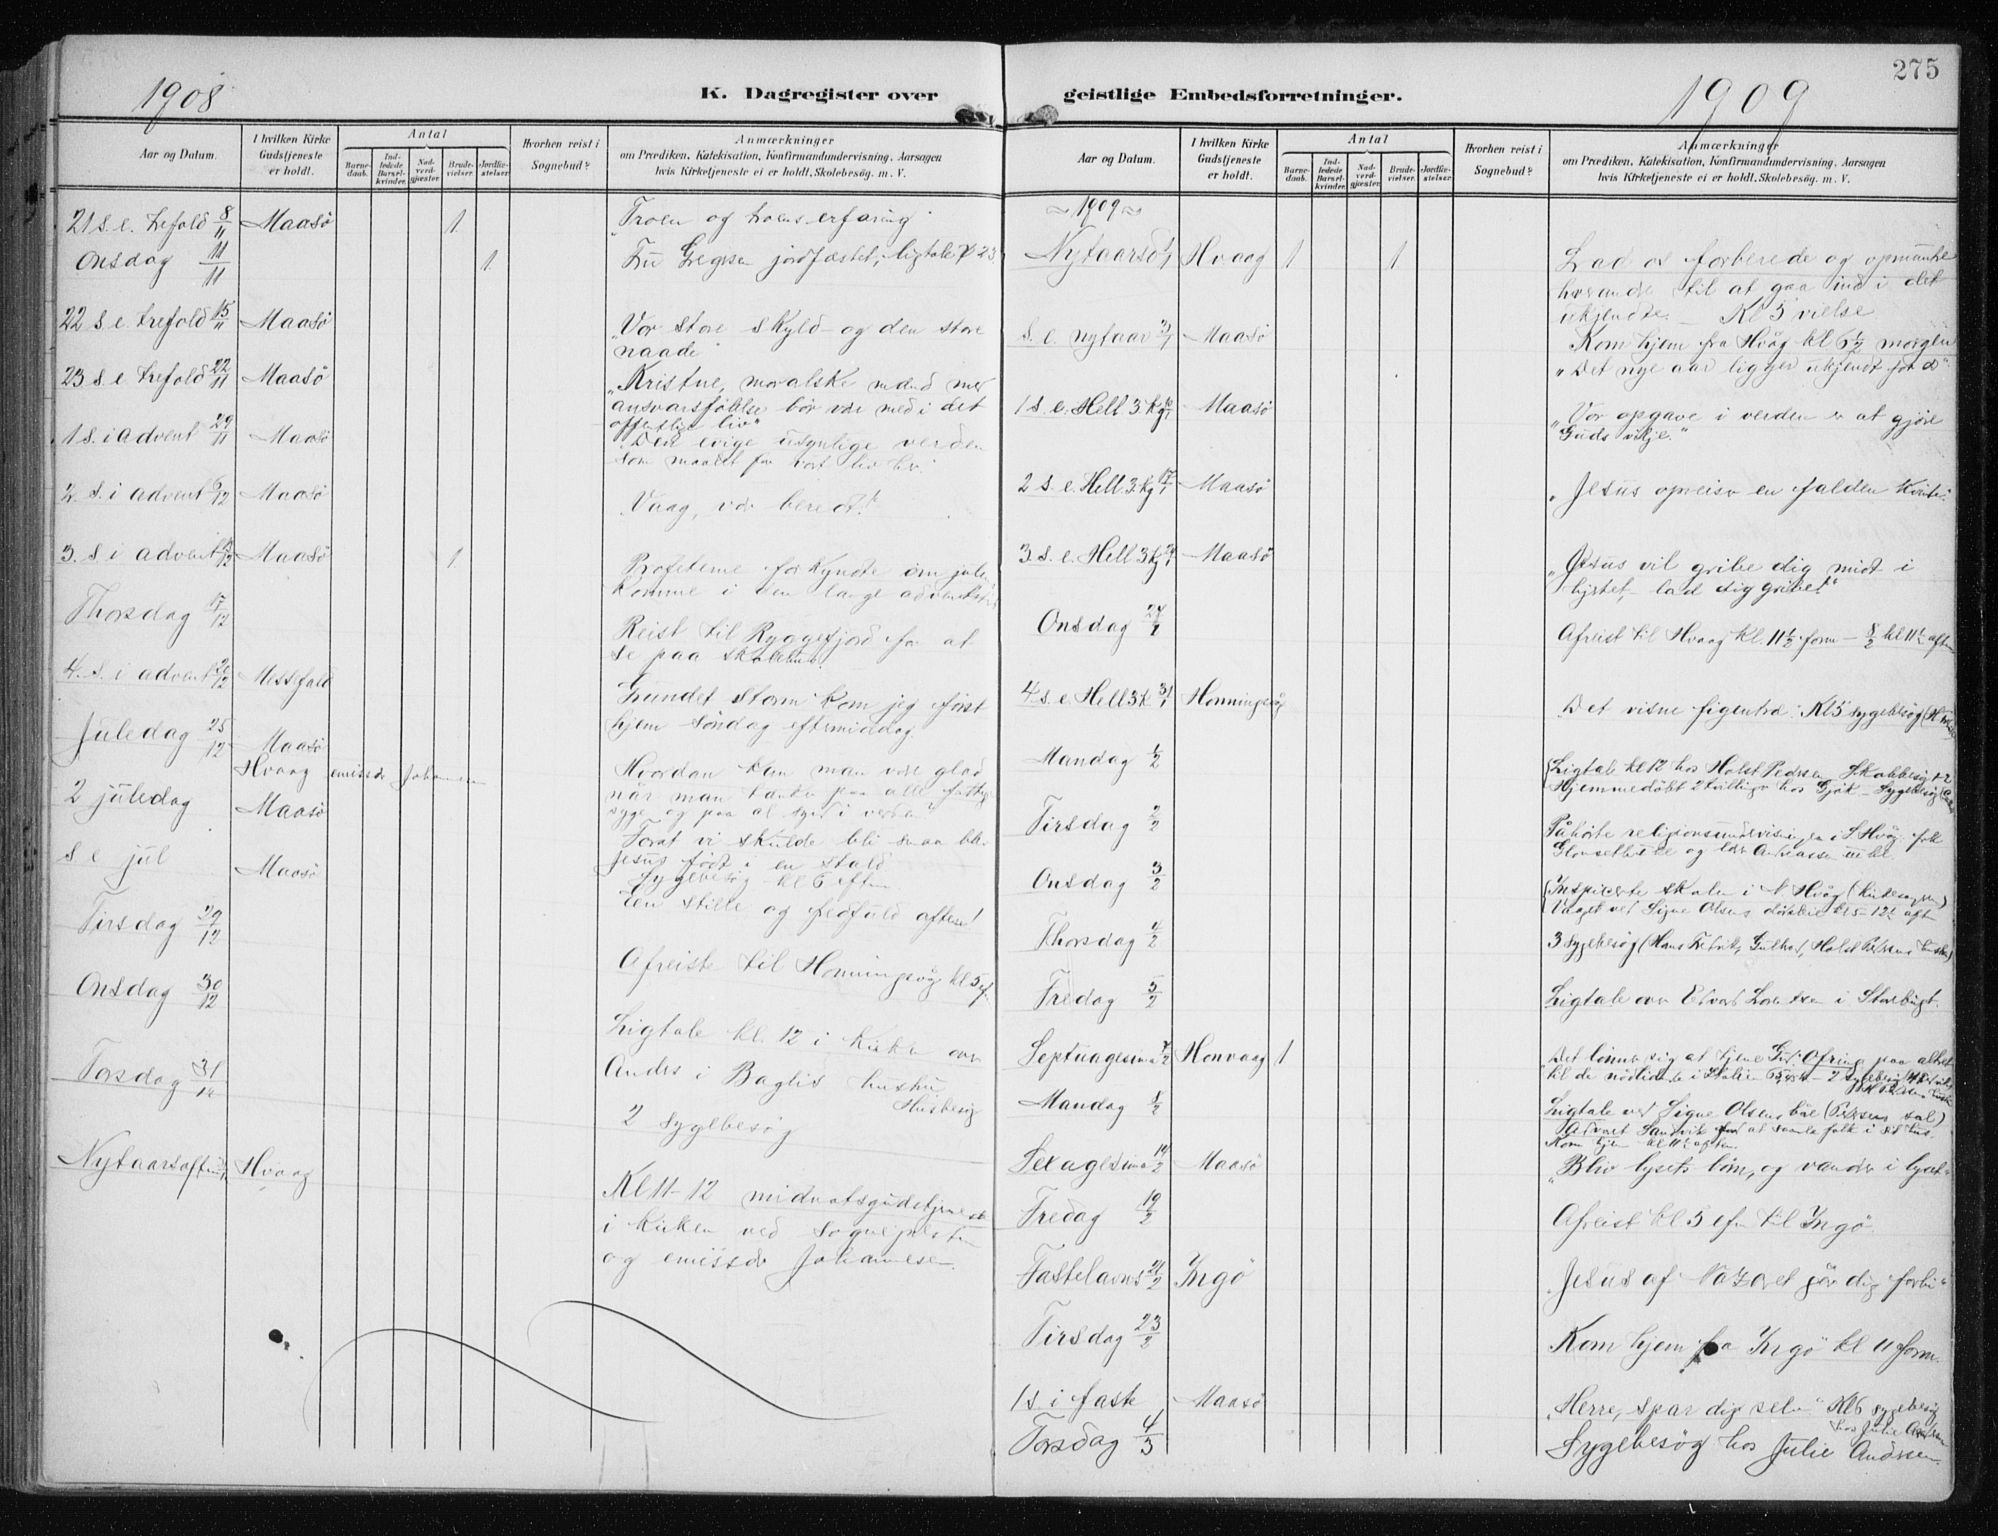 1908
K. Dagregister over
Aar og Datum.
I hvilken Kirke Gudstjeneste er holdt.
Antal
Barnedaab.
Indledede Barselkvinder.
Nadverdgjæster
Brudevielser
Jordfæstelser
Hvorhen reist i Sognebud?
Anmærkninger
om Prædiken, Katekisation, Konfirmandundervisning, Aarsagen
hvis Kirketjeneste ei er holdt, Skolebesøg. m. V.
21 s. e. trefold 8/11 Maasø 1 "Troen og troens erfaring"
Onsdag 11/11 1 Fru jordfæstet, ligtale
22 s. e. trefold 15/11 Maasø "Vor store skyld og den store
naade"
23 s e. trefold 22/11 Maasø "Kristne, moralske mænd med
ansvarsfølelse bør være med i det
offentlige liv"
1 s. i advent 29/11 Maasø "Den evige usynlige verden
som maalet for vort liv
2. s. i advent 6/12 Maasø Vaag, vær beredt!
3. s i advent 13/12 Maasø 1 Profeterne forkyndte om jule
komme i den lange adventstid
Thorsdag 17/12 Reist til Ryggefjord for at
se paa skolehus.
4. s. i advent 20/12 Messefald Grundet storm kom jeg først
hjem søndag eftermiddag
Juledag 25/12 Maasø
Hvaag emissær Johannesen
Hvordan kan man være glad
når man tænker paa alle fattige
syge og paa al synd i verden?
2 juledag Maasø Forat vi skulde bli smaa blev
Jesus født i en stald
s e jul Maasø Sygebesøg kl 6 eftm
En stille og fredfuld aften!
Tirsdag 29/12 Afreiste til Honningsvåg kl 5 ef.
Onsdag 30/12 Ligtale kl. 12 i kirken over
Anders i
Husbesøg
Torsdag 31/12 2 sygebesøg
Nytaarsaften Hvaag Kl 11-12 midnatsgudstjeneste
i kirken ved sognepresten
og emissær Johannesen.
275
geistlige Embedsforretninger.
1909
Aar og Datum.
I hvilken Kirke Gudstjeneste er holdt.
Antal
Barnedaab.
Indledede Barselkvinder.
Nadverdgjæster
Brudevielser.
Jordfæstelser
Hvorhen reist i Sognebud?
Anmærkninger
om Prædiken, Katekisation, Konfirmandundervisning, Aarsagen
hvis Kirketjeneste ei er holdt, Skolebesøg. m. V.
~ 1909 ~
Nytaarsd 1/1 Hvaag 1 1 Lad os forberede og opmuntre
hverandre til at gaa ind i det
ukjendte. – Kl 5 vielse
s. e. nytaar 3/1 Maasø Kom hjem fra Hvåg kl 6 1/2 morgen
"Det nye aar ligger ukjendt for os"
1 s. e. Hell 3 kg 10/1 Maasø "Vor opgave i verden er at gjøre
Guds vilje."
2 s. e. Hell 3 kg 17/1 Maasø "Jesus opreiser en falden kvinde
3 s. e. Hell 3 kg 24/1 Maasø "Jesus vil gribe dig midt i
hjertet, – lad dig gribe!"
Onsdag 27/1 Afreist til Hvaag kl. 11 1/2 form – 8/2 kl 11 1/2 aften
4 s. e. Hell 3 k 31/1 Honningsvåg Det visne figentræ. Kl 5 sygebesøg
Mandag 1/2 Ligtale kl 12 hos Holst Pedersen
Hjemmedøbt 2 tvillinger hos – Sygebesøg
Tirsdag 2/2 Påhørte religionsundervisningen i S Hvåg
og lær Andreassen
Onsdag 3/2 Inspicerte skolen i N Hvåg
Vaaget ved Signe Olsens dødsleie kl 5 – 12 aft
Thorsdag 4/2 3 Sygebesøg (Hans Holst Pedersens
Fredag 5/2 Ligtale over Edvard Lorentzen i Storebugt.
Septuagesima 7/2 Honvaag 1 Det lønner sig at tjene Gud. Ofring paa alteret
til de nødlidende i Italien – 2 sygebesøg
Mandag 8/2 Ligtale ved Signe Olsens båre
Advaret Sandvik at samle folk i sit hus.
Kom hjem kl 11 1/2 aften.
Sexagesima 14/2 Maasø "Bliv lysets børn, og vandre i lyset"
Fredag 19/2 Afreist kl 5 efm til Ingø.
Fastelavns 21/2 Ingø Jesus af Nazaret går dig forbi"
Tirsdag 23/2 Kom hjem fra Ingø kl 11 form.
1 s. i faste Maasø "Herre, spar dig selv" Kl 6 sygebesøg
hos Julie Andersen
Torsdag 4/3 Sygebesøg hos Julie Andersen.